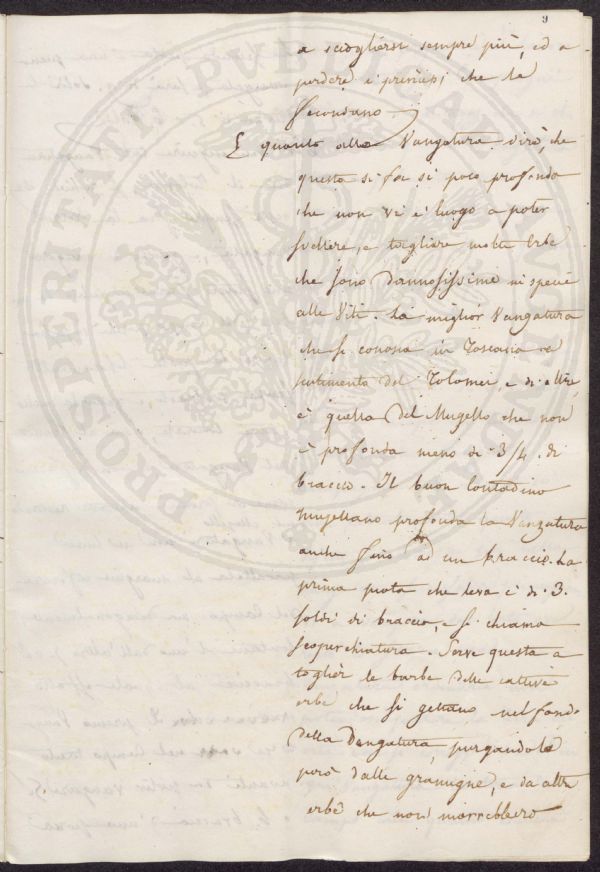 9
a sciogliersi sempre più, ed a
perdere i principj che la
fecondano.
E quanto alla Vangatura dirò che
questa si fa sì poco profonda
che non vi è luogo a poter
svellere, e togliere molte Erbe
che sono dannosissime in specie
alle Viti. La miglior Vangatura
che si conosca in Toscana a
sentimento del Tolomei, e di altri
è quella del Mugello che non
è profonda meno di 3/4 di
braccio. Il buon Contadino
Mugellano profonda la Vangatura
anche fino ad un braccio. La
prima piota che leva è di 3.
soldi di braccio, e si chiama
scoperchiatura. Serve questa a
toglier le barbe delle cattive
erbe che si gettano nel fondo
della Vangatura, purgandola
però dalle gramigne, e da altre
erbe che non marcebbero
PROSPERITATI PUBLICAE AUGENDAE